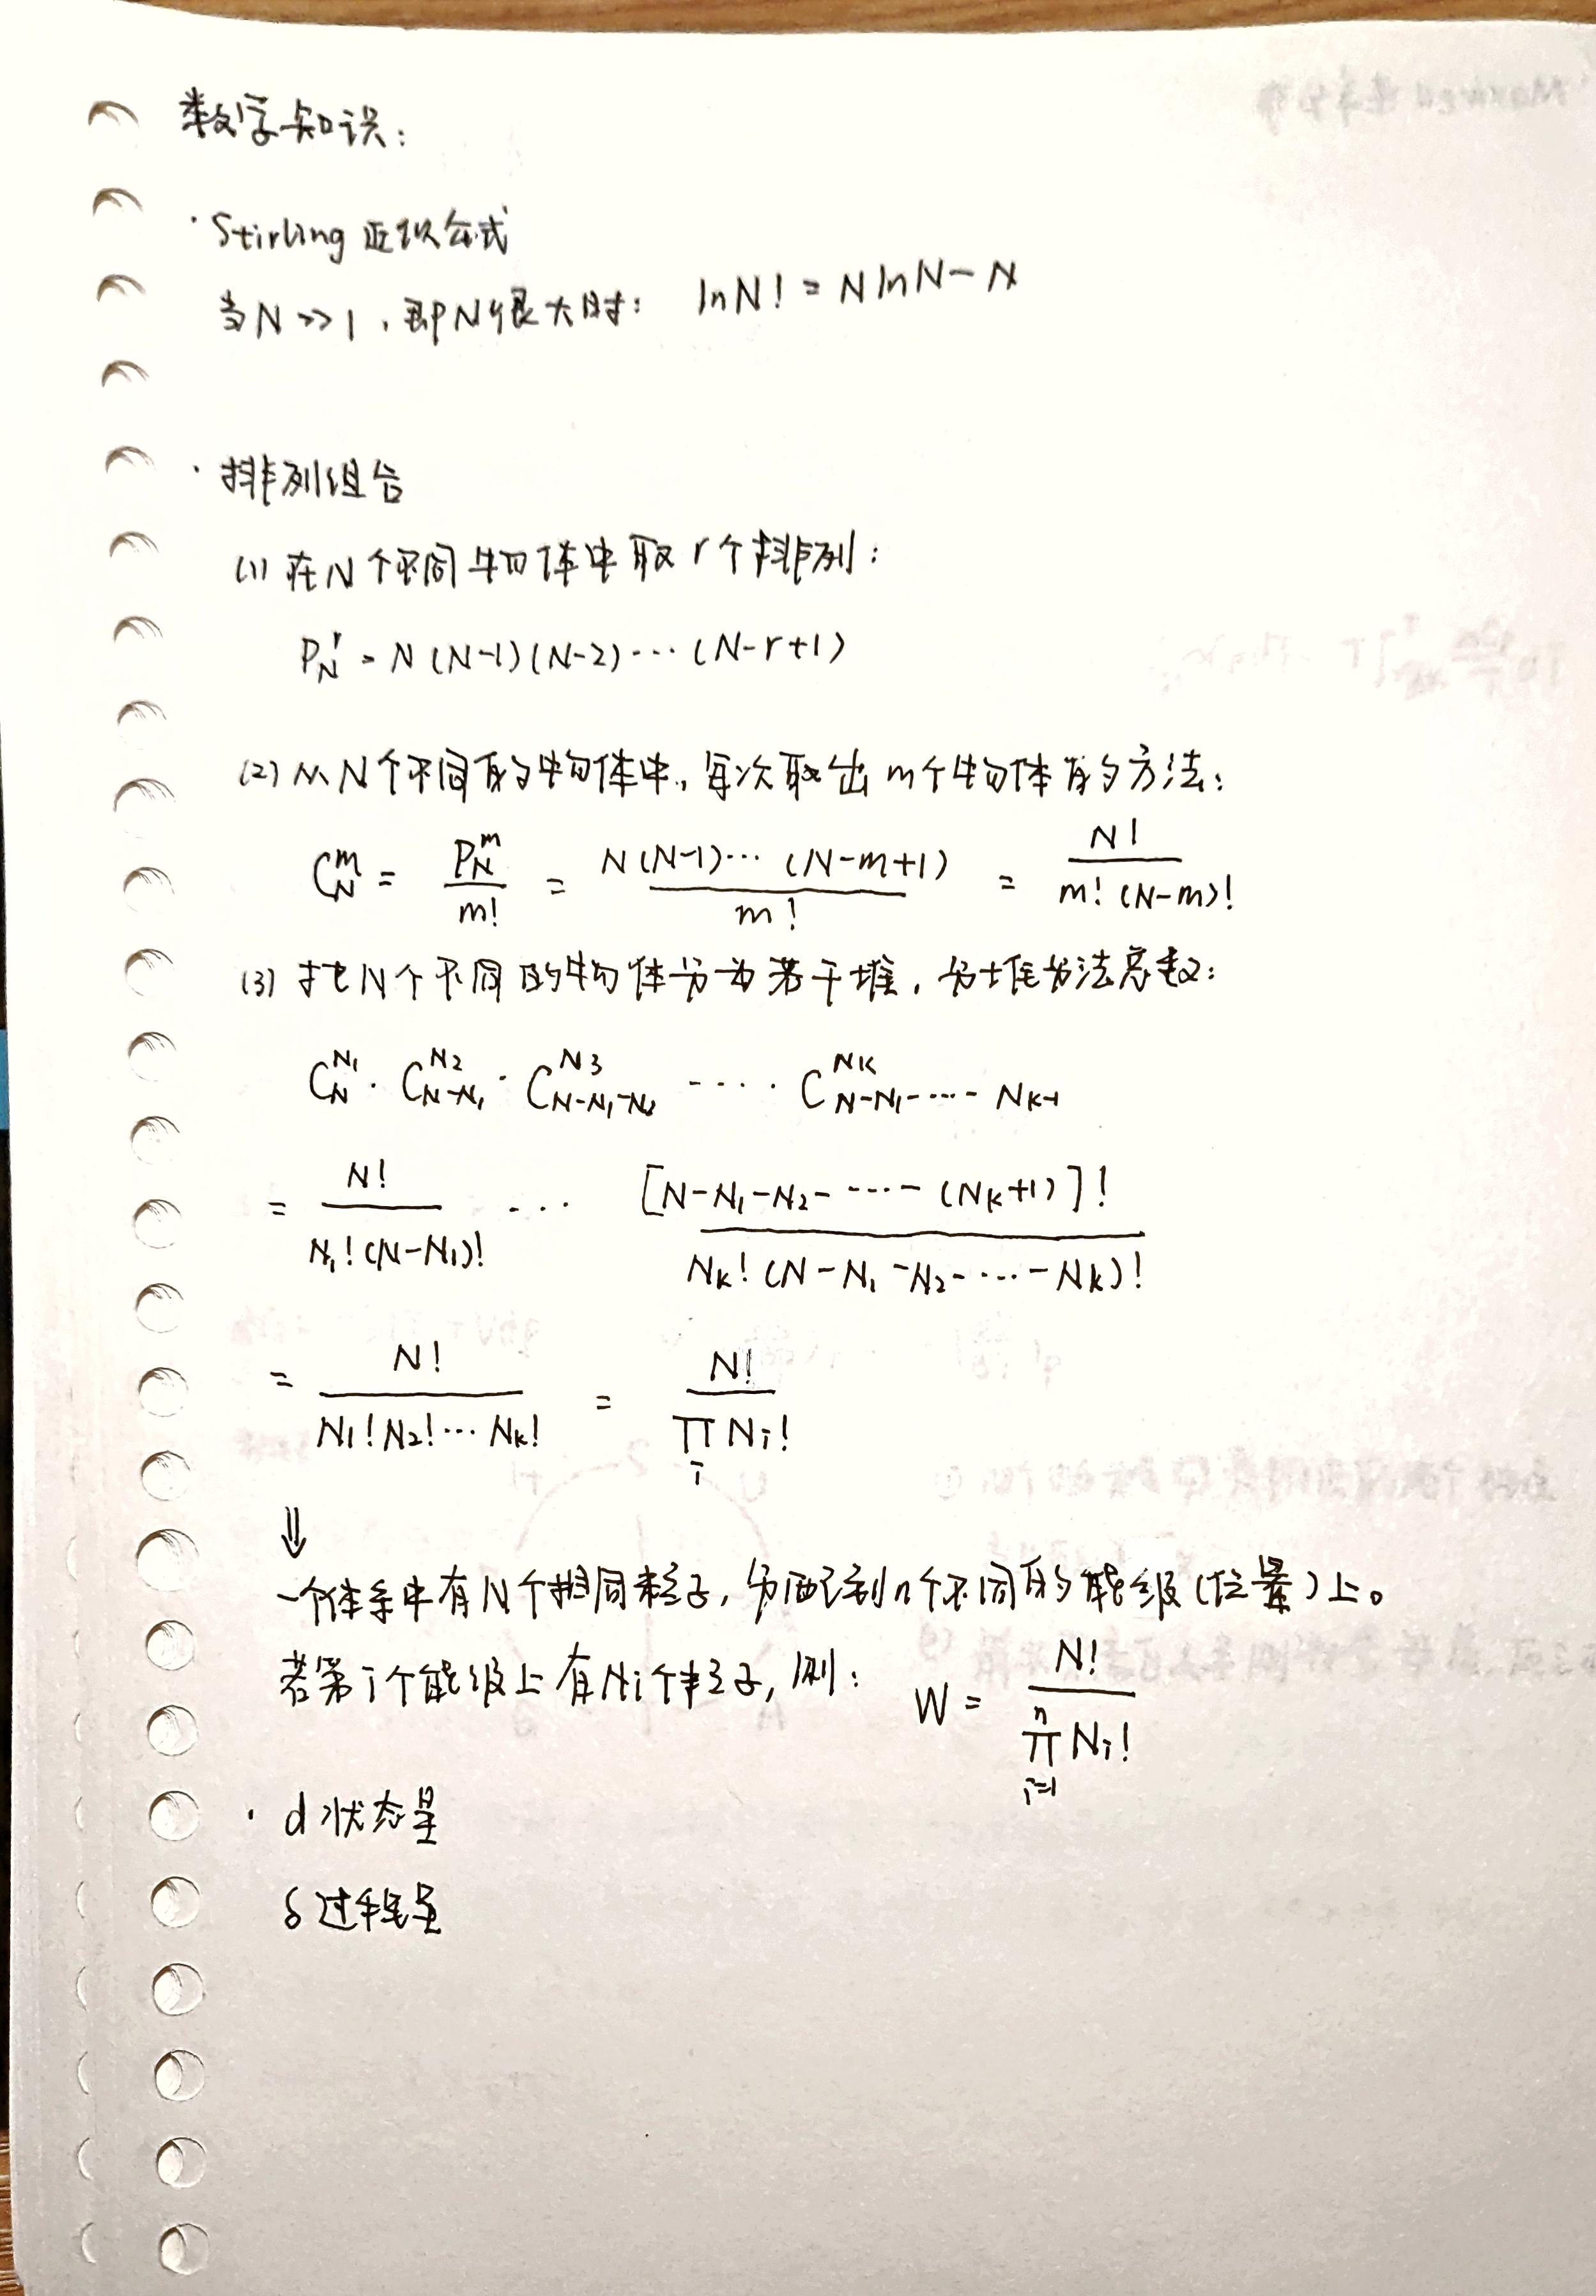 数学知识:
· Stirling 近似公式
当N>>1,即N很大时: lnN! = NlnN-N
· 排列组合
(1) 在N个不同物体中取r个排列:
P_N^r = N(N-1)(N-2)···(N-r+1)
(2) 从N个不同的物体中,每次取出m个物体的方法:
C_N^m = P_N^m / m! = N(N-1)···(N-m+1) / m! = N! / m!(N-m)!
(3) 把N个不同的物体分为若干堆,分堆方法总数:
C_N^{N_1} · C_{N-N_1}^{N_2} · C_{N-N_1-N_2}^{N_3} ···· C_{N-N_1-···-N_{k-1}}^{N_k}
= N! / N_1!(N-N_1)! ··· [N-N_1-N_2-···-(N_k+1)]! / N_k!(N-N_1-N_2-···-N_k)!
= N! / N_1!N_2!···N_k! = N! / ∏_i N_i!
⇓
一个体系中有N个相同粒子,分配到n个不同的能级(位置)上。
若第i个能级上有N_i个粒子,则: W = N! / ∏_{i=1}^n N_i!
· d 状态量
δ 过程量